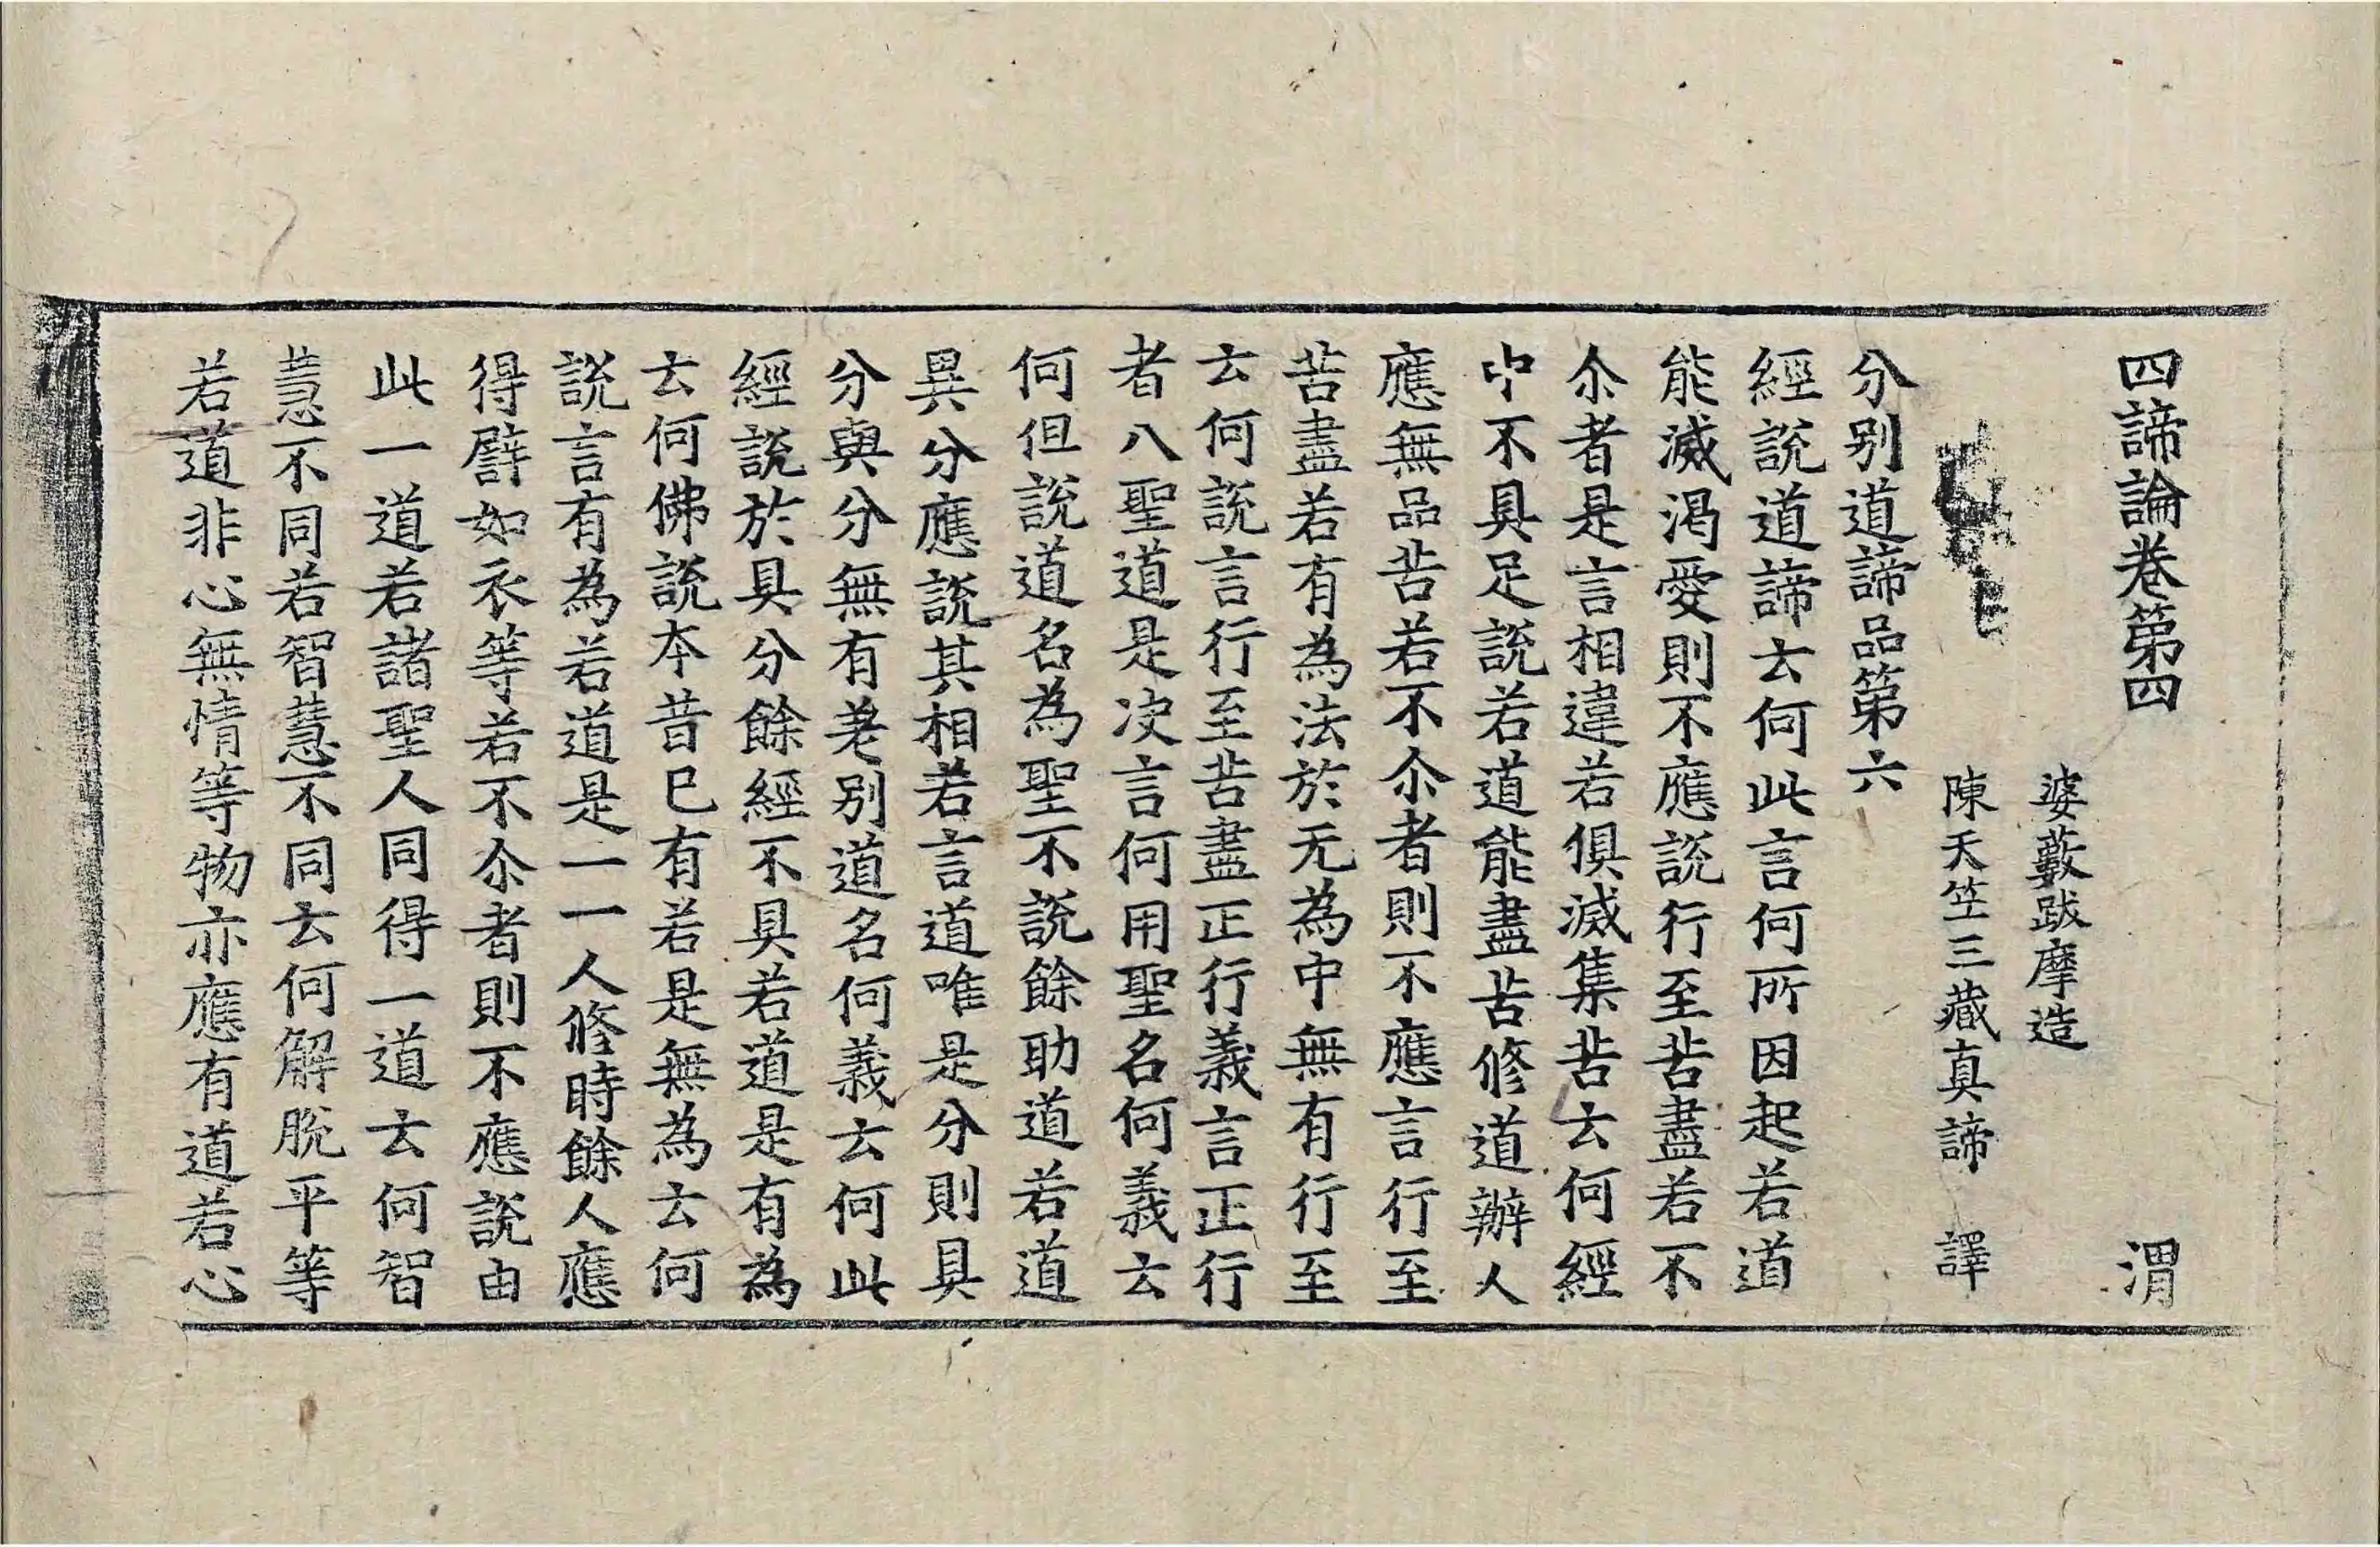 四諦論卷第四 渭
婆藪跋摩造
陳天竺三藏真諦 譯
分別道諦品第六
經說道諦云何此言何所因起若道
能滅渴愛則不應說行至苦盡若不
尒者是言相違若俱滅集苦云何經
中不具足說若道能盡苦修道辦人
應無品苦若不尒者則不應言行至
苦盡若有為法於无為中無有行至
云何說言行至苦盡正行義言正行
者八聖道是決言何用聖名何義云
何但說道名為聖不說餘助道若道
異分應說其相若言道唯是分則具
分與分無有差別道名何義云何此
經說於具分餘經不具若道是有為
云何佛說本昔已有若是無為云何
說言有為若道是一一人修時餘人應
得譬如衣等若不尒者則不應說由
此一道若諸聖人同得一道云何智
慧不同若智慧不同云何解脫平等
若道非心無情等物亦應有道若心